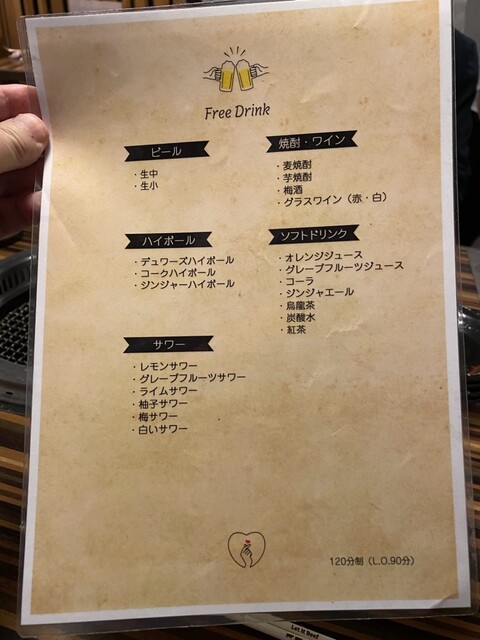 Free Drink
ビール
・生中
・生小
焼酎・ワイン
・麦焼酎
・芋焼酎
・梅酒
・グラスワイン（赤・白）
ハイボール
・デュワーズハイボール
・コークハイボール
・ジンジャーハイボール
ソフトドリンク
・オレンジジュース
・グレープフルーツジュース
・コーラ
・ジンジャエール
・烏龍茶
・炭酸水
・紅茶
サワー
・レモンサワー
・グレープフルーツサワー
・ライムサワー
・柚子サワー
・梅サワー
・白いサワー
120分制（L.O.90分）
Let It Beef